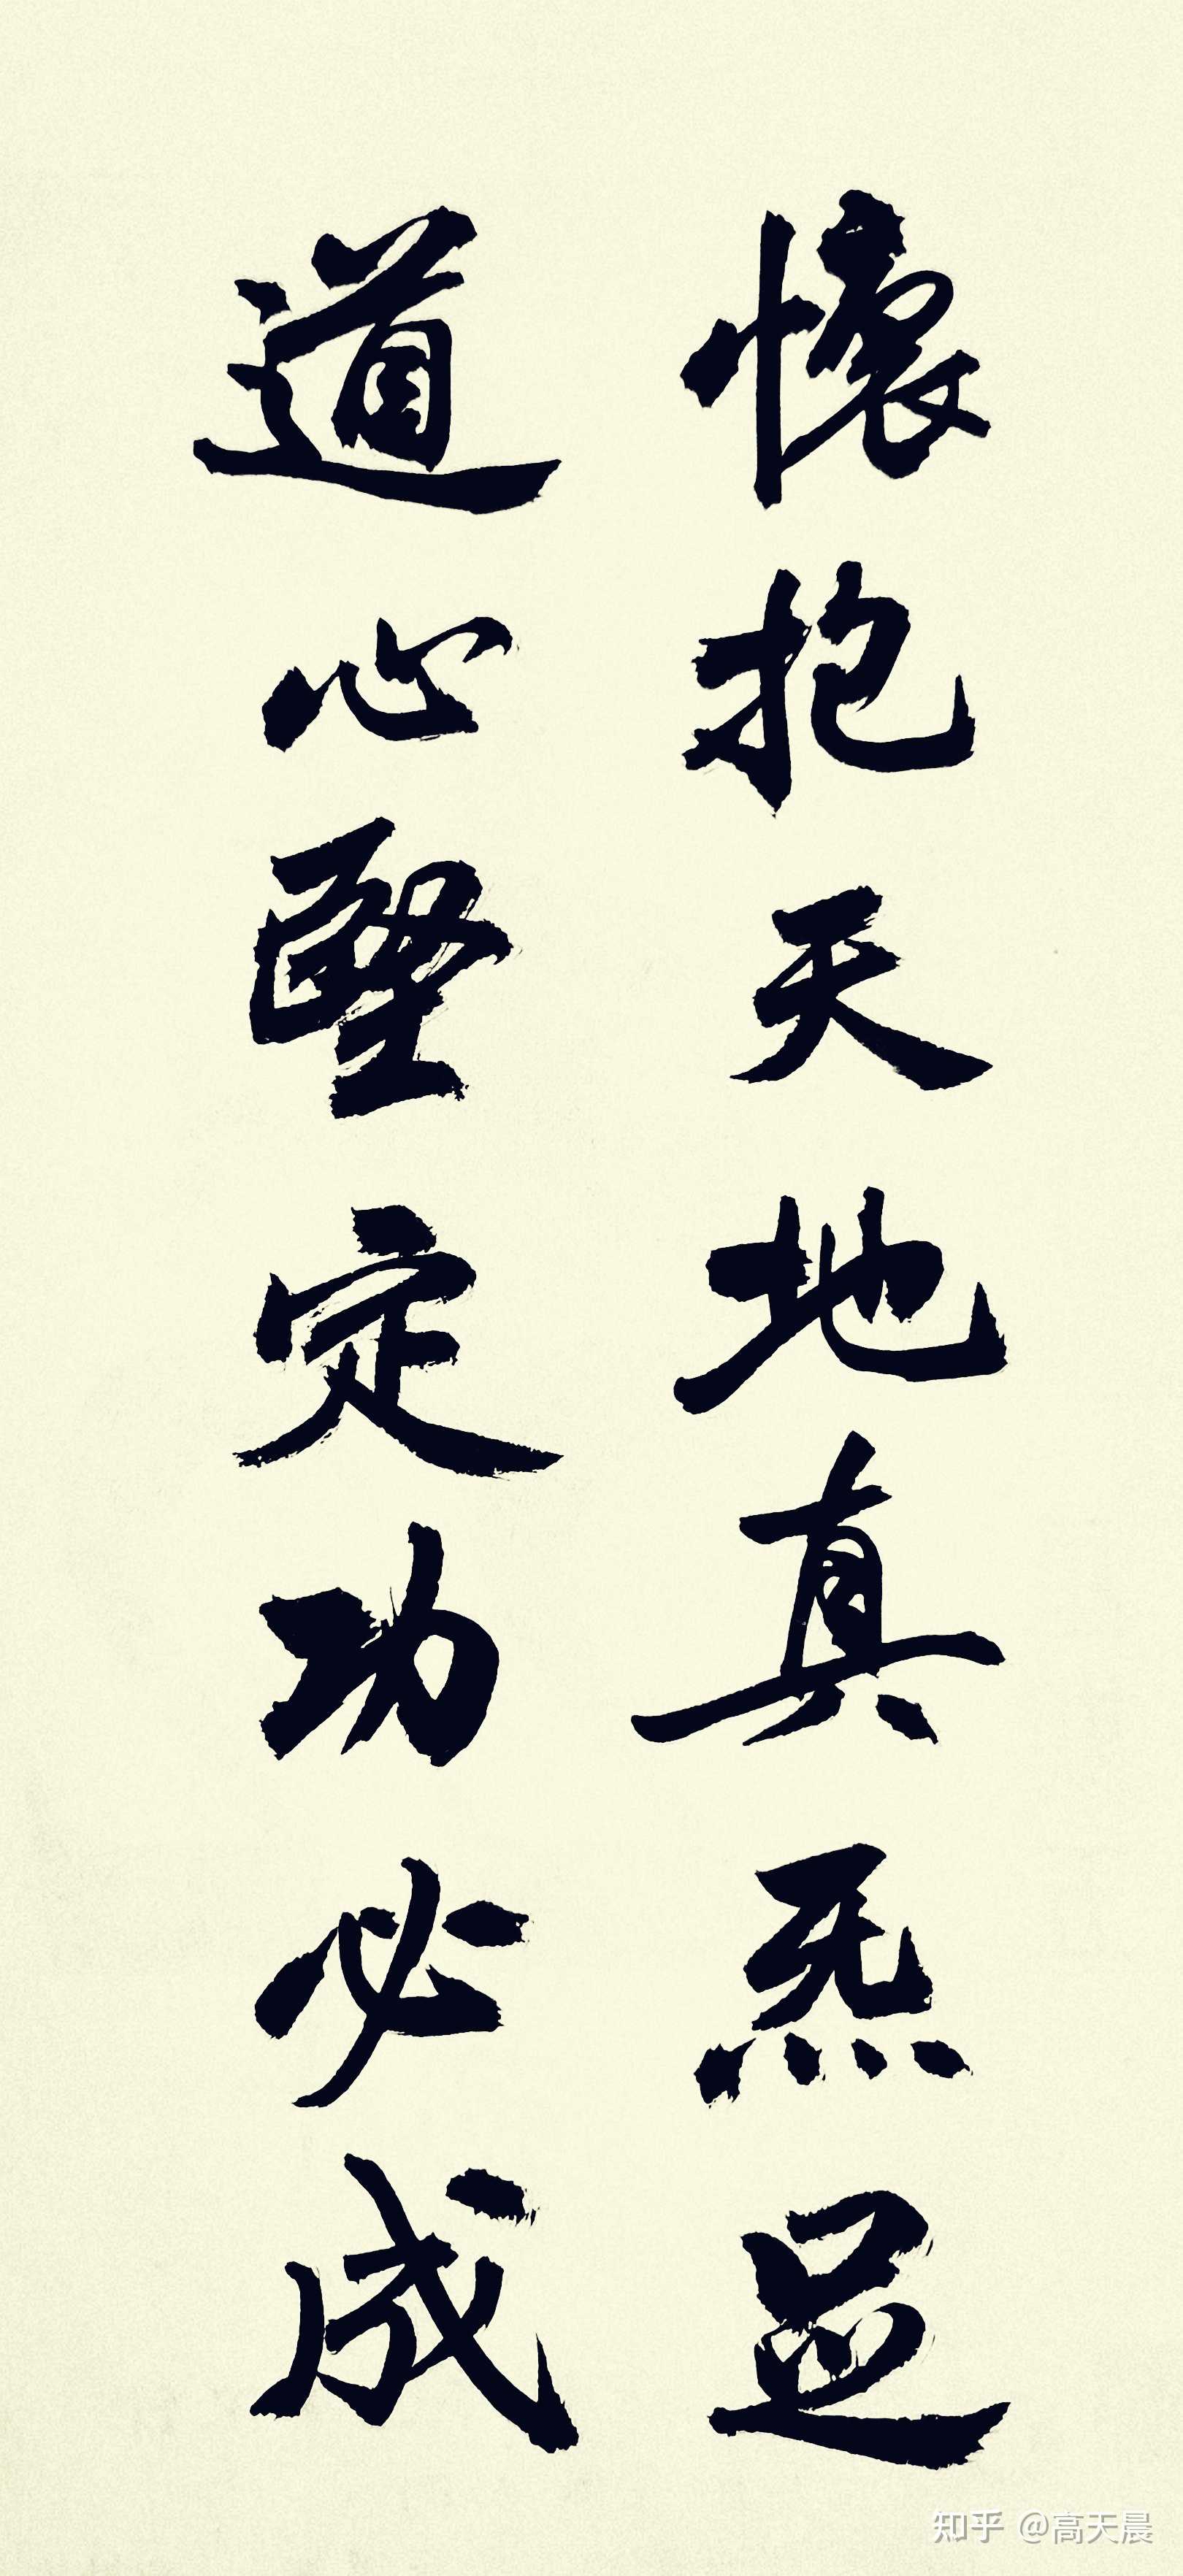 懷抱天地真炁足
道心堅定功必成
知乎 @高天晨